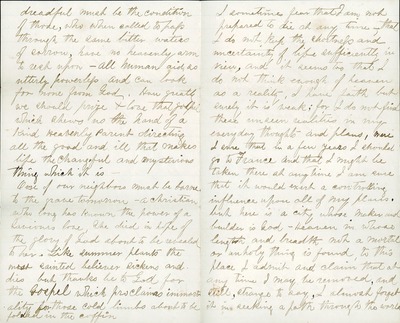 dreadful must be the condition
of those, who when called to pass
through the same bitter waters
of sorrow, have no heavenly arm
to rest upon - all human aid, so
utterly powerless and can look
for none from God. How greatly
we should prize & love that gospel
which shews us the hand of a
kind Heavenly Parent directing
all the good and ill that makes
life the changeful and mysterious
thing which it is -
One of our neighbors must be borne
to the grave tomorrow - a christian
who long has known the power of a
Saviours love. She died in hope of
the glory of God about to be revealed
to her. Like summer plants the
most sainted believer sickens and
dies but thanks be to God for
the Gospel which proclaims immort
ality for those cold limbs about to be
folded in the coffin
I sometimes fear that I am not
prepared to die at any time - that
I do not keep the shortness and
uncertainty of life sufficiently in
view, and it seems too that I
do not think enough of heaven
as a reality. I have faith but
surely it is weak; for I do not find
these unseen realities in my
everyday thoughts and plans, were
I sure that in a few years I should
go to France and that I might be
taken there at anytime I am sure
that it would exert a controlling
influence upon all of my plans.
but here is a city whose maker and
builder is God - heaven in whose
length and breadth not a mortal
or unholy thing is found, to this
place I admit and claim that at
any time I may be removed, and
still, strange to say, I almost forget
it in seeking a path through the world